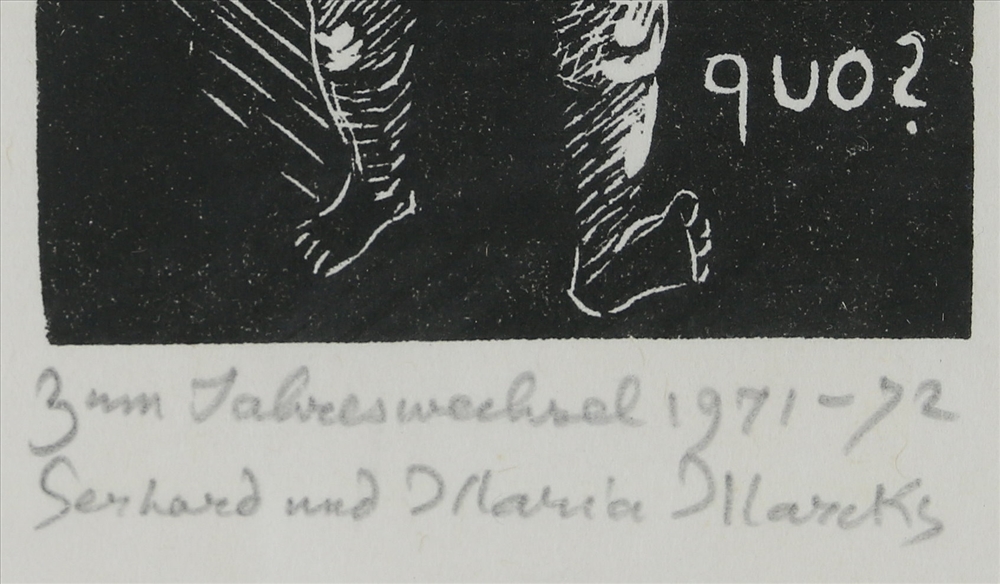 quo?
Zum Jahreswechsel 1971-72
Gerhard und Maria Marcks